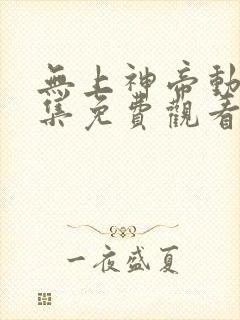 無上神帝動
集免費觀看
一夜盛夏